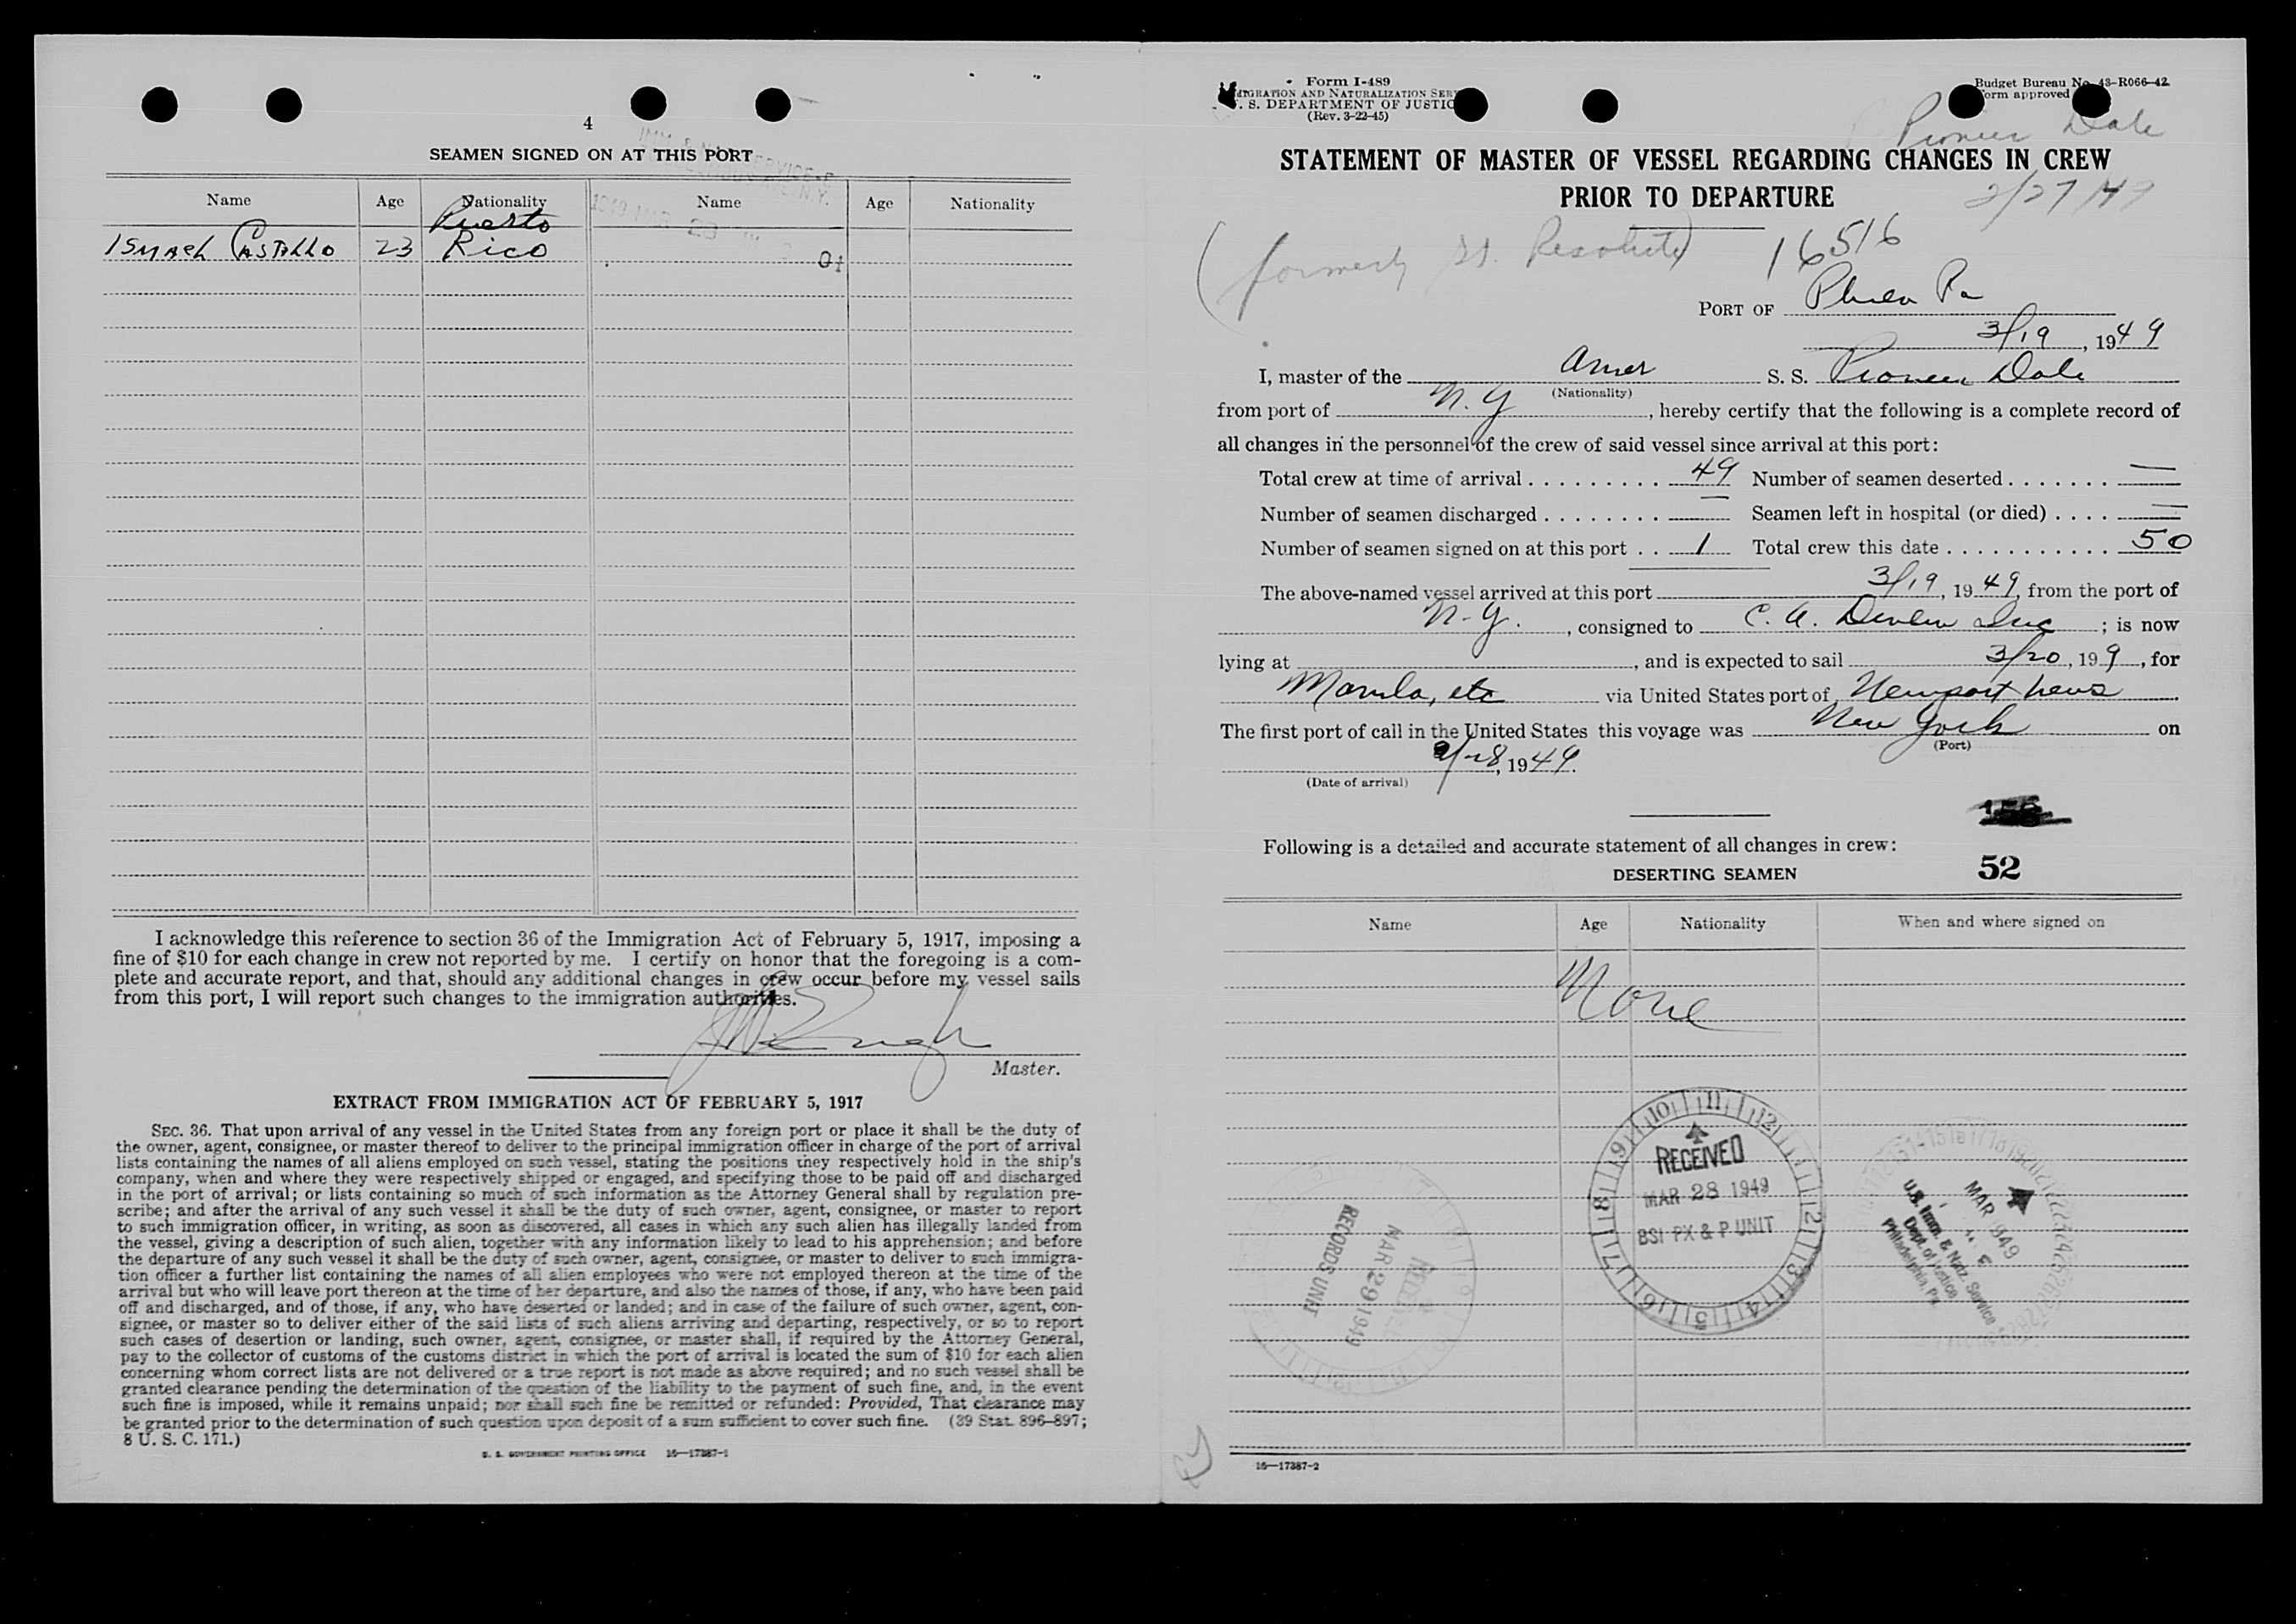 4
SEAMEN SIGNED ON AT THIS PORT
Name Age Nationality Name Age Nationality
Puerto
ISMAEL CASTELLO 23 Rico
I acknowledge this reference to section 36 of the Immigration Act of February 5, 1917, imposing a
fine of $10 for each change in crew not reported by me. I certify on honor that the foregoing is a com-
plete and accurate report, and that, should any additional changes in crew occur before my vessel sails
from this port, I will report such changes to the immigration authorities.
Master.
EXTRACT FROM IMMIGRATION ACT OF FEBRUARY 5, 1917
SEC. 36. That upon arrival of any vessel in the United States from any foreign port or place it shall be the duty of
the owner, agent, consignee, or master thereof to deliver to the principal immigration officer in charge of the port of arrival
lists containing the names of all aliens employed on such vessel, stating the positions they respectively hold in the ship's
company, when and where they were respectively shipped or engaged, and specifying those to be paid off and discharged
in the port of arrival; or lists containing so much of such information as the Attorney General shall by regulation pre-
scribe; and after the arrival of any such vessel it shall be the duty of such owner, agent, consignee, or master to report
to such immigration officer, in writing, as soon as discovered, all cases in which any such alien has illegally landed from
the vessel, giving a description of such alien, together with any information likely to lead to his apprehension; and before
the departure of any such vessel it shall be the duty of such owner, agent, consignee, or master to deliver to such immigra-
tion officer a further list containing the names of all alien employees who were not employed thereon at the time of the
arrival but who will leave port thereon at the time of her departure, and also the names of those, if any, who have been paid
off and discharged, and of those, if any, who have deserted or landed; and in case of the failure of such owner, agent, con-
signee, or master so to deliver either of the said lists of such aliens arriving and departing, respectively, or so to report
such cases of desertion or landing, such owner, agent, consignee, or master shall, if required by the Attorney General,
pay to the collector of customs of the customs district in which the port of arrival is located the sum of $10 for each alien
concerning whom correct lists are not delivered or a true report is not made as above required; and no such vessel shall be
granted clearance pending the determination of the question of the liability to the payment of such fine, and, in the event
such fine is imposed, while it remains unpaid; nor shall such fine be remitted or refunded: Provided, That clearance may
be granted prior to the determination of such question upon deposit of a sum sufficient to cover such fine. (39 Stat. 896–897;
8 U. S. C. 171.)
U. S. GOVERNMENT PRINTING OFFICE 16—17387-1
Form I-489
IGRATION AND NATURALIZATION SER
S. DEPARTMENT OF JUSTIC
(Rev. 3-22-45)
Budget Bureau No. 43-R066-42
orm approved
Pioneer Dale
STATEMENT OF MASTER OF VESSEL REGARDING CHANGES IN CREW
PRIOR TO DEPARTURE
2/27/49
(formerly St. Resolute) 16516
PORT OF Phila Pa
3/19, 1949
I, master of the Amer S. S. Pioneer Dale
(Nationality)
from port of N. Y, hereby certify that the following is a complete record of
all changes in the personnel of the crew of said vessel since arrival at this port:
Total crew at time of arrival 49 Number of seamen deserted —
Number of seamen discharged — Seamen left in hospital (or died) —
Number of seamen signed on at this port 1 Total crew this date 50
The above-named vessel arrived at this port 3/19, 1949, from the port of
N. Y., consigned to C. A. Devlin Inc; is now
lying at , and is expected to sail 3/20, 19 9, for
Manila, etc via United States port of Newport News
The first port of call in the United States this voyage was New York on
(Port)
2/28, 1949.
(Date of arrival)
Following is a detailed and accurate statement of all changes in crew:
52
DESERTING SEAMEN
Name Age Nationality When and where signed on
None
RECEIVED
MAR 28 1949
BSI PX & P UNIT
RECEIVED
MAR 29 1949
RECORDS UNIT
MAR 949
U.S. Imm. & Natz. Service
Dept. of Justice
Philadelphia, Pa.
16—17387-2